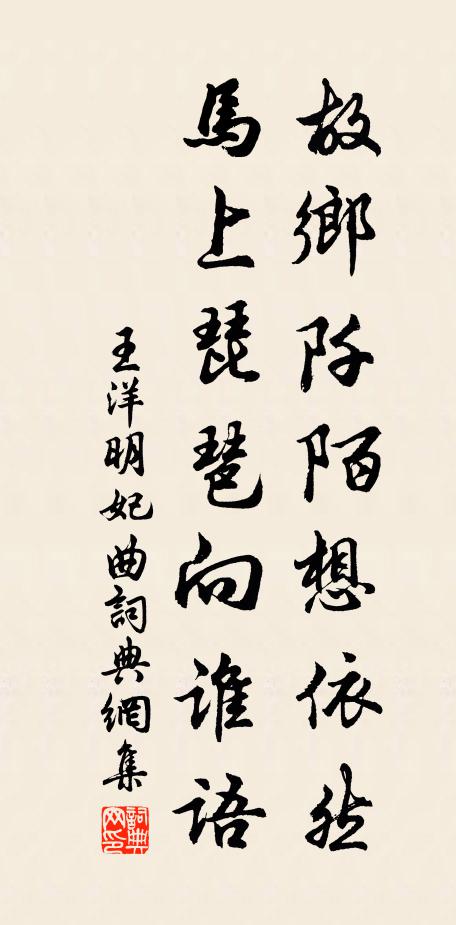 故鄉阡陌想依然
馬上琵琶向誰語
王洋明妃曲詞典網集
詞典网印